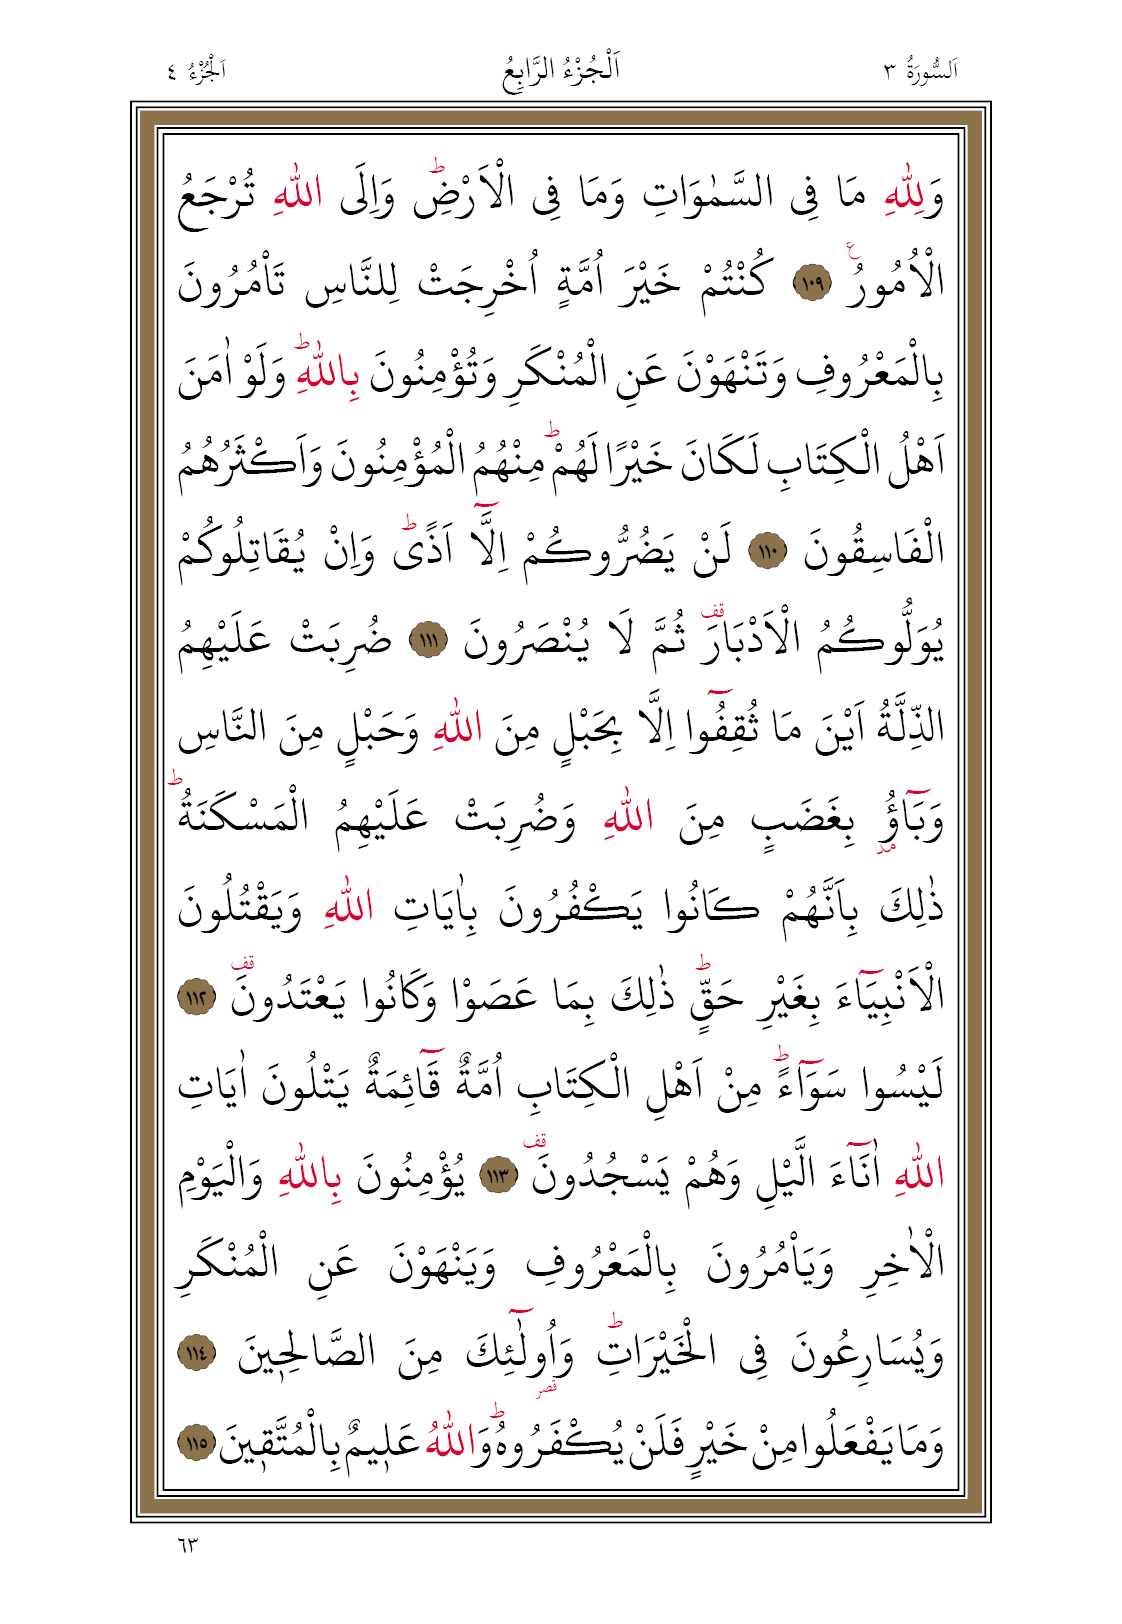 اَلسُّورَةُ ٣ اَلْجُزْءُ الرَّابِعُ اَلْجُزْءُ ٤
وَلِلّٰهِ مَا فِى السَّمٰوَاتِ وَمَا فِى الْاَرْضِۜ وَاِلَى اللّٰهِ تُرْجَعُ
الْاُمُورُ۟ ﴿١٠٩﴾ كُنْتُمْ خَيْرَ اُمَّةٍ اُخْرِجَتْ لِلنَّاسِ تَأْمُرُونَ
بِالْمَعْرُوفِ وَتَنْهَوْنَ عَنِ الْمُنْكَرِ وَتُؤْمِنُونَ بِاللّٰهِۜ وَلَوْ اٰمَنَ
اَهْلُ الْكِتَابِ لَكَانَ خَيْرًا لَهُمْۜ مِنْهُمُ الْمُؤْمِنُونَ وَاَكْثَرُهُمُ
الْفَاسِقُونَ ﴿١١٠﴾ لَنْ يَضُرُّوكُمْ اِلَّٓا اَذًىۜ وَاِنْ يُقَاتِلُوكُمْ
يُوَلُّوكُمُ الْاَدْبَارَ۠ ثُمَّ لَا يُنْصَرُونَ ﴿١١١﴾ ضُرِبَتْ عَلَيْهِمُ
الذِّلَّةُ اَيْنَ مَا ثُقِفُٓوا اِلَّا بِحَبْلٍ مِنَ اللّٰهِ وَحَبْلٍ مِنَ النَّاسِ
وَبَٓاؤُ۫ بِغَضَبٍ مِنَ اللّٰهِ وَضُرِبَتْ عَلَيْهِمُ الْمَسْكَنَةُۜ
ذٰلِكَ بِاَنَّهُمْ كَانُوا يَكْفُرُونَ بِاٰيَاتِ اللّٰهِ وَيَقْتُلُونَ
الْاَنْبِيَٓاءَ بِغَيْرِ حَقٍّۜ ذٰلِكَ بِمَا عَصَوْا وَكَانُوا يَعْتَدُونَ۠ ﴿١١٢﴾
لَيْسُوا سَوَٓاءًۜ مِنْ اَهْلِ الْكِتَابِ اُمَّةٌ قَٓائِمَةٌ يَتْلُونَ اٰيَاتِ
اللّٰهِ اٰنَٓاءَ الَّيْلِ وَهُمْ يَسْجُدُونَ۠ ﴿١١٣﴾ يُؤْمِنُونَ بِاللّٰهِ وَالْيَوْمِ
الْاٰخِرِ وَيَأْمُرُونَ بِالْمَعْرُوفِ وَيَنْهَوْنَ عَنِ الْمُنْكَرِ
وَيُسَارِعُونَ فِى الْخَيْرَاتِۜ وَاُو۬لٰٓئِكَ مِنَ الصَّالِح۪ينَ ﴿١١٤﴾
وَمَا يَفْعَلُوا مِنْ خَيْرٍ فَلَنْ يُكْفَرُوهُۜ وَاللّٰهُ عَل۪يمٌ بِالْمُتَّق۪ينَ ﴿١١٥﴾
٦٣